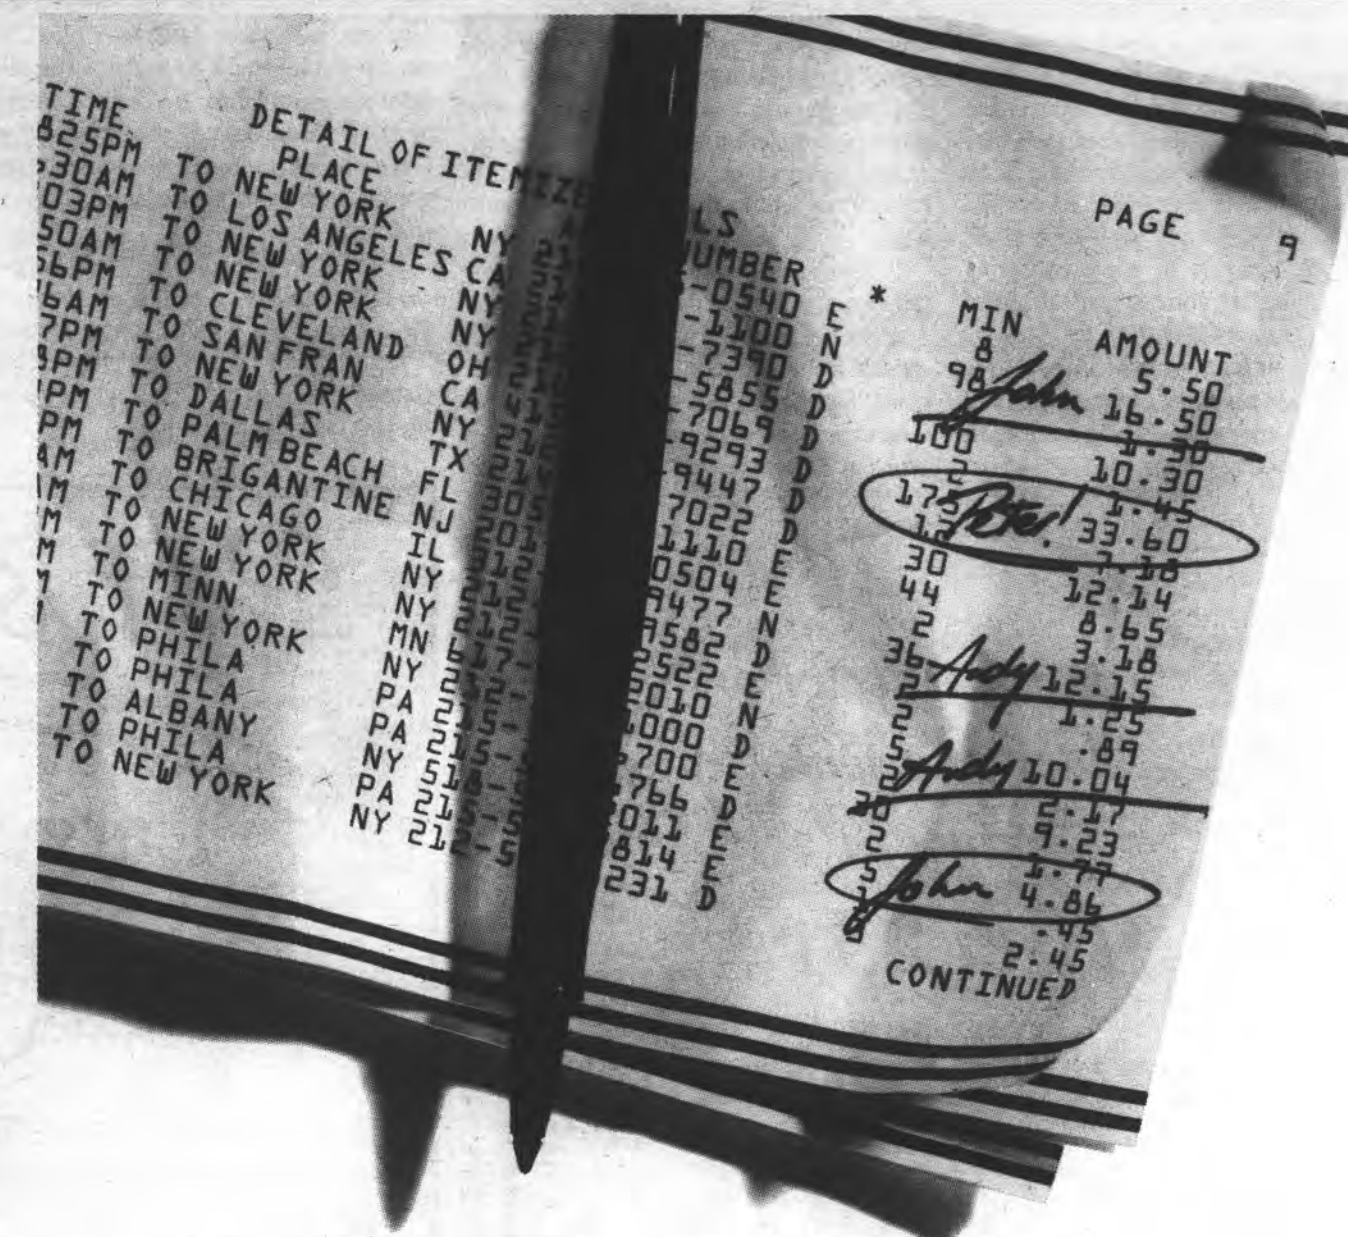 DETAIL OF ITEMIZE LS PAGE 9
TIME PLACE UMBER * MIN AMOUNT
825PM TO NEW YORK NY -0540 E 8 5.50
30AM TO LOS ANGELES CA -1100 N 98 John 16.50
03PM TO NEW YORK NY -7390 D 1.30
50AM TO NEW YORK NY -5855 D 100 10.30
56PM TO CLEVELAND OH 21 -7069 D 2 1.45
6AM TO SAN FRAN CA 41 -9293 D 175 Peter! 33.60
7PM TO NEW YORK NY 21 -9447 D 12 7.18
8PM TO DALLAS TX 21 7022 D 30 12.14
PM TO PALM BEACH FL 305 1110 E 44 8.65
PM TO BRIGANTINE NJ 201 0504 E 2 3.18
AM TO CHICAGO IL 312 9477 N 36 Andy 12.15
M TO NEW YORK NY 212 9582 D 2 1.25
M TO NEW YORK NY 212- 2522 E 2 .89
M TO MINN MN 612- 2010 N 5 Andy 10.04
M TO NEW YORK NY 212- 1000 D 2 2.17
TO PHILA PA 215- 700 E 20 9.23
TO PHILA PA 215- 766 D 2 1.77
TO ALBANY NY 518- 011 E 5 John 4.86
TO PHILA PA 215-5 814 E 1 .45
TO NEW YORK NY 212-5 231 D 2.45
CONTINUED